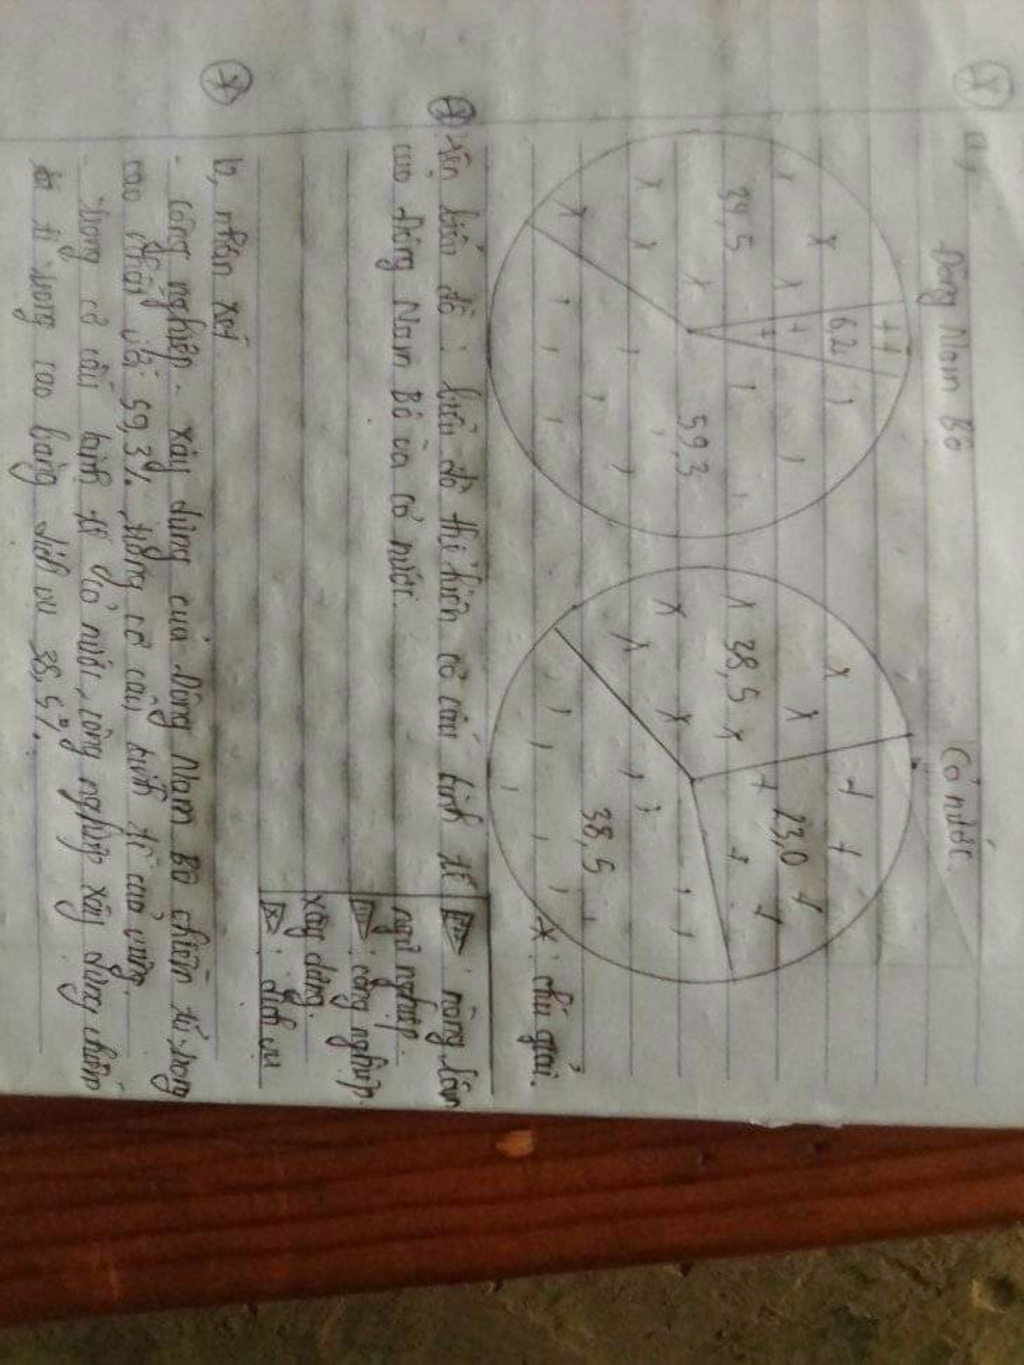 a,
Đông Nam Bộ
Cả nước.
6,2
34,5
59,3
23,0
38,5
38,5
* : chú giải.
: nông lâm
ngư nghiệp.
: công nghiệp
xây dựng.
: dịch vụ
tên biểu đồ : biểu đồ thể hiện cơ cấu kinh tế
của Đông Nam Bộ và cả nước.
b, nhận xét
- công nghiệp - xây dựng của Đông Nam Bộ chiếm tỉ trọng
cao nhất với 59,3% trong cơ cấu kinh tế của vùng.
- trong cơ cấu kinh tế cả nước, công nghiệp xây dựng chiếm
tỉ trọng cao bằng dịch vụ 38,5%.